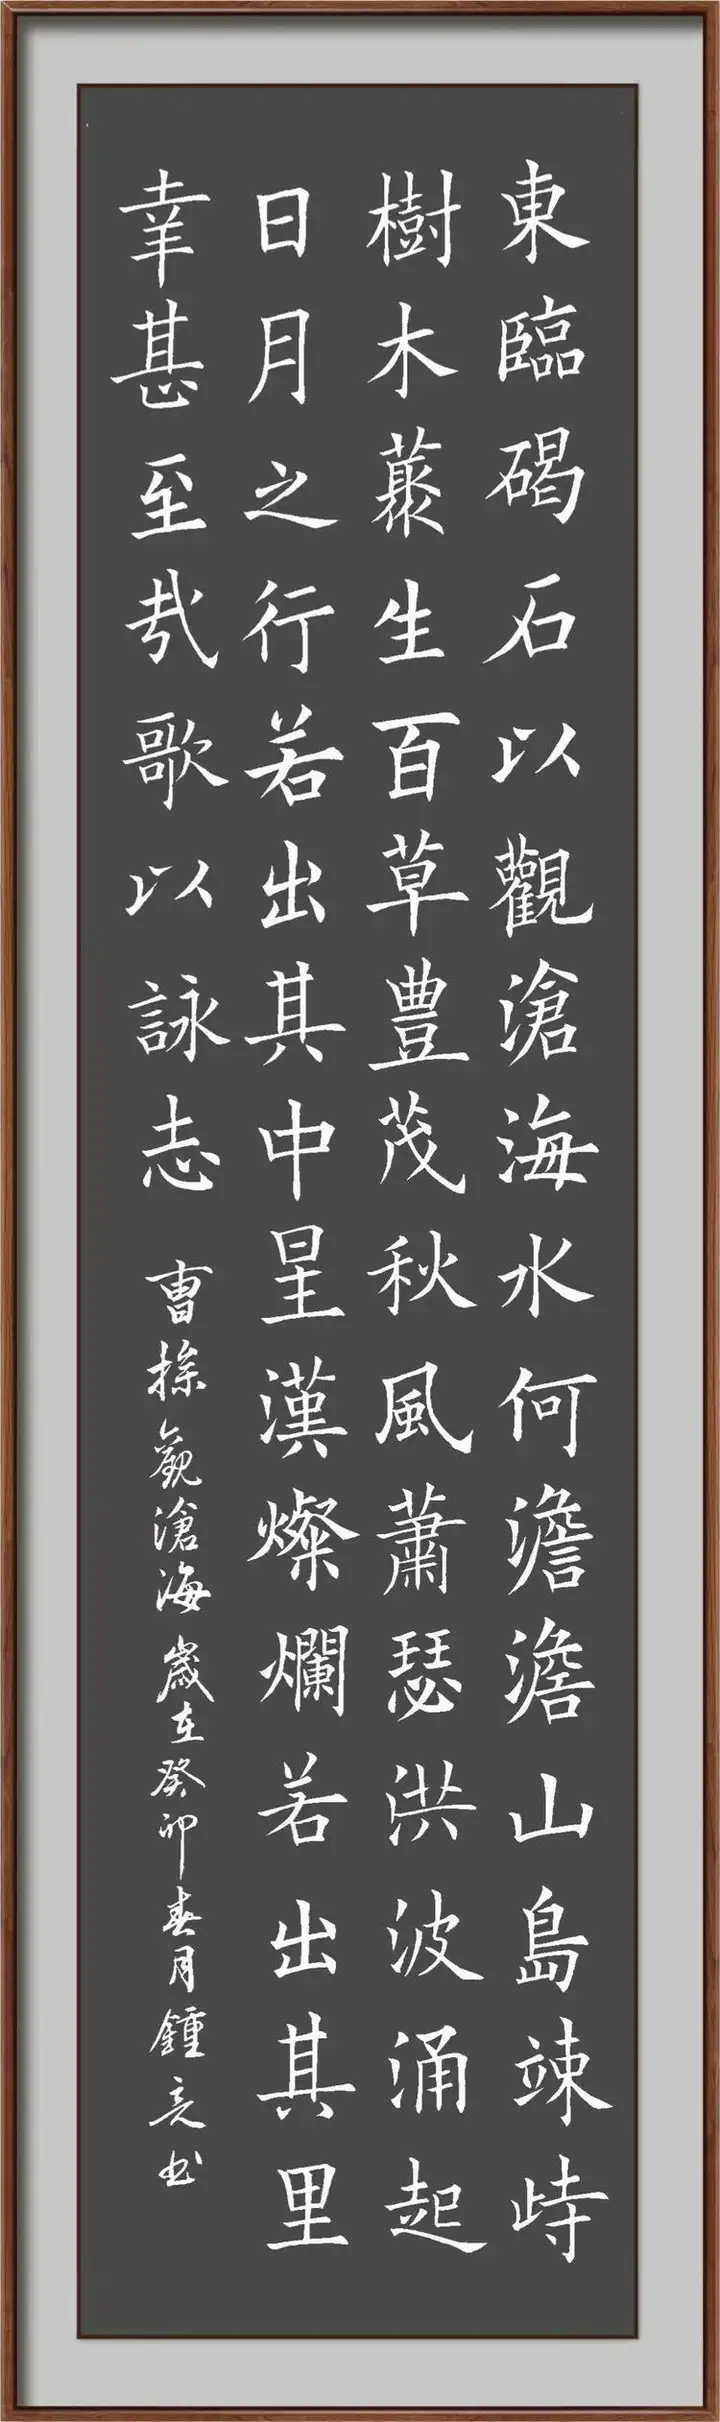 東臨碣石以觀滄海水何澹澹山島竦峙
樹木藂生百草豊茂秋風蕭瑟洪波涌起
日月之行若出其中星漢燦爛若出其里
幸甚至哉歌以詠志
曹操觀滄海歲在癸卯春月鍾亮书